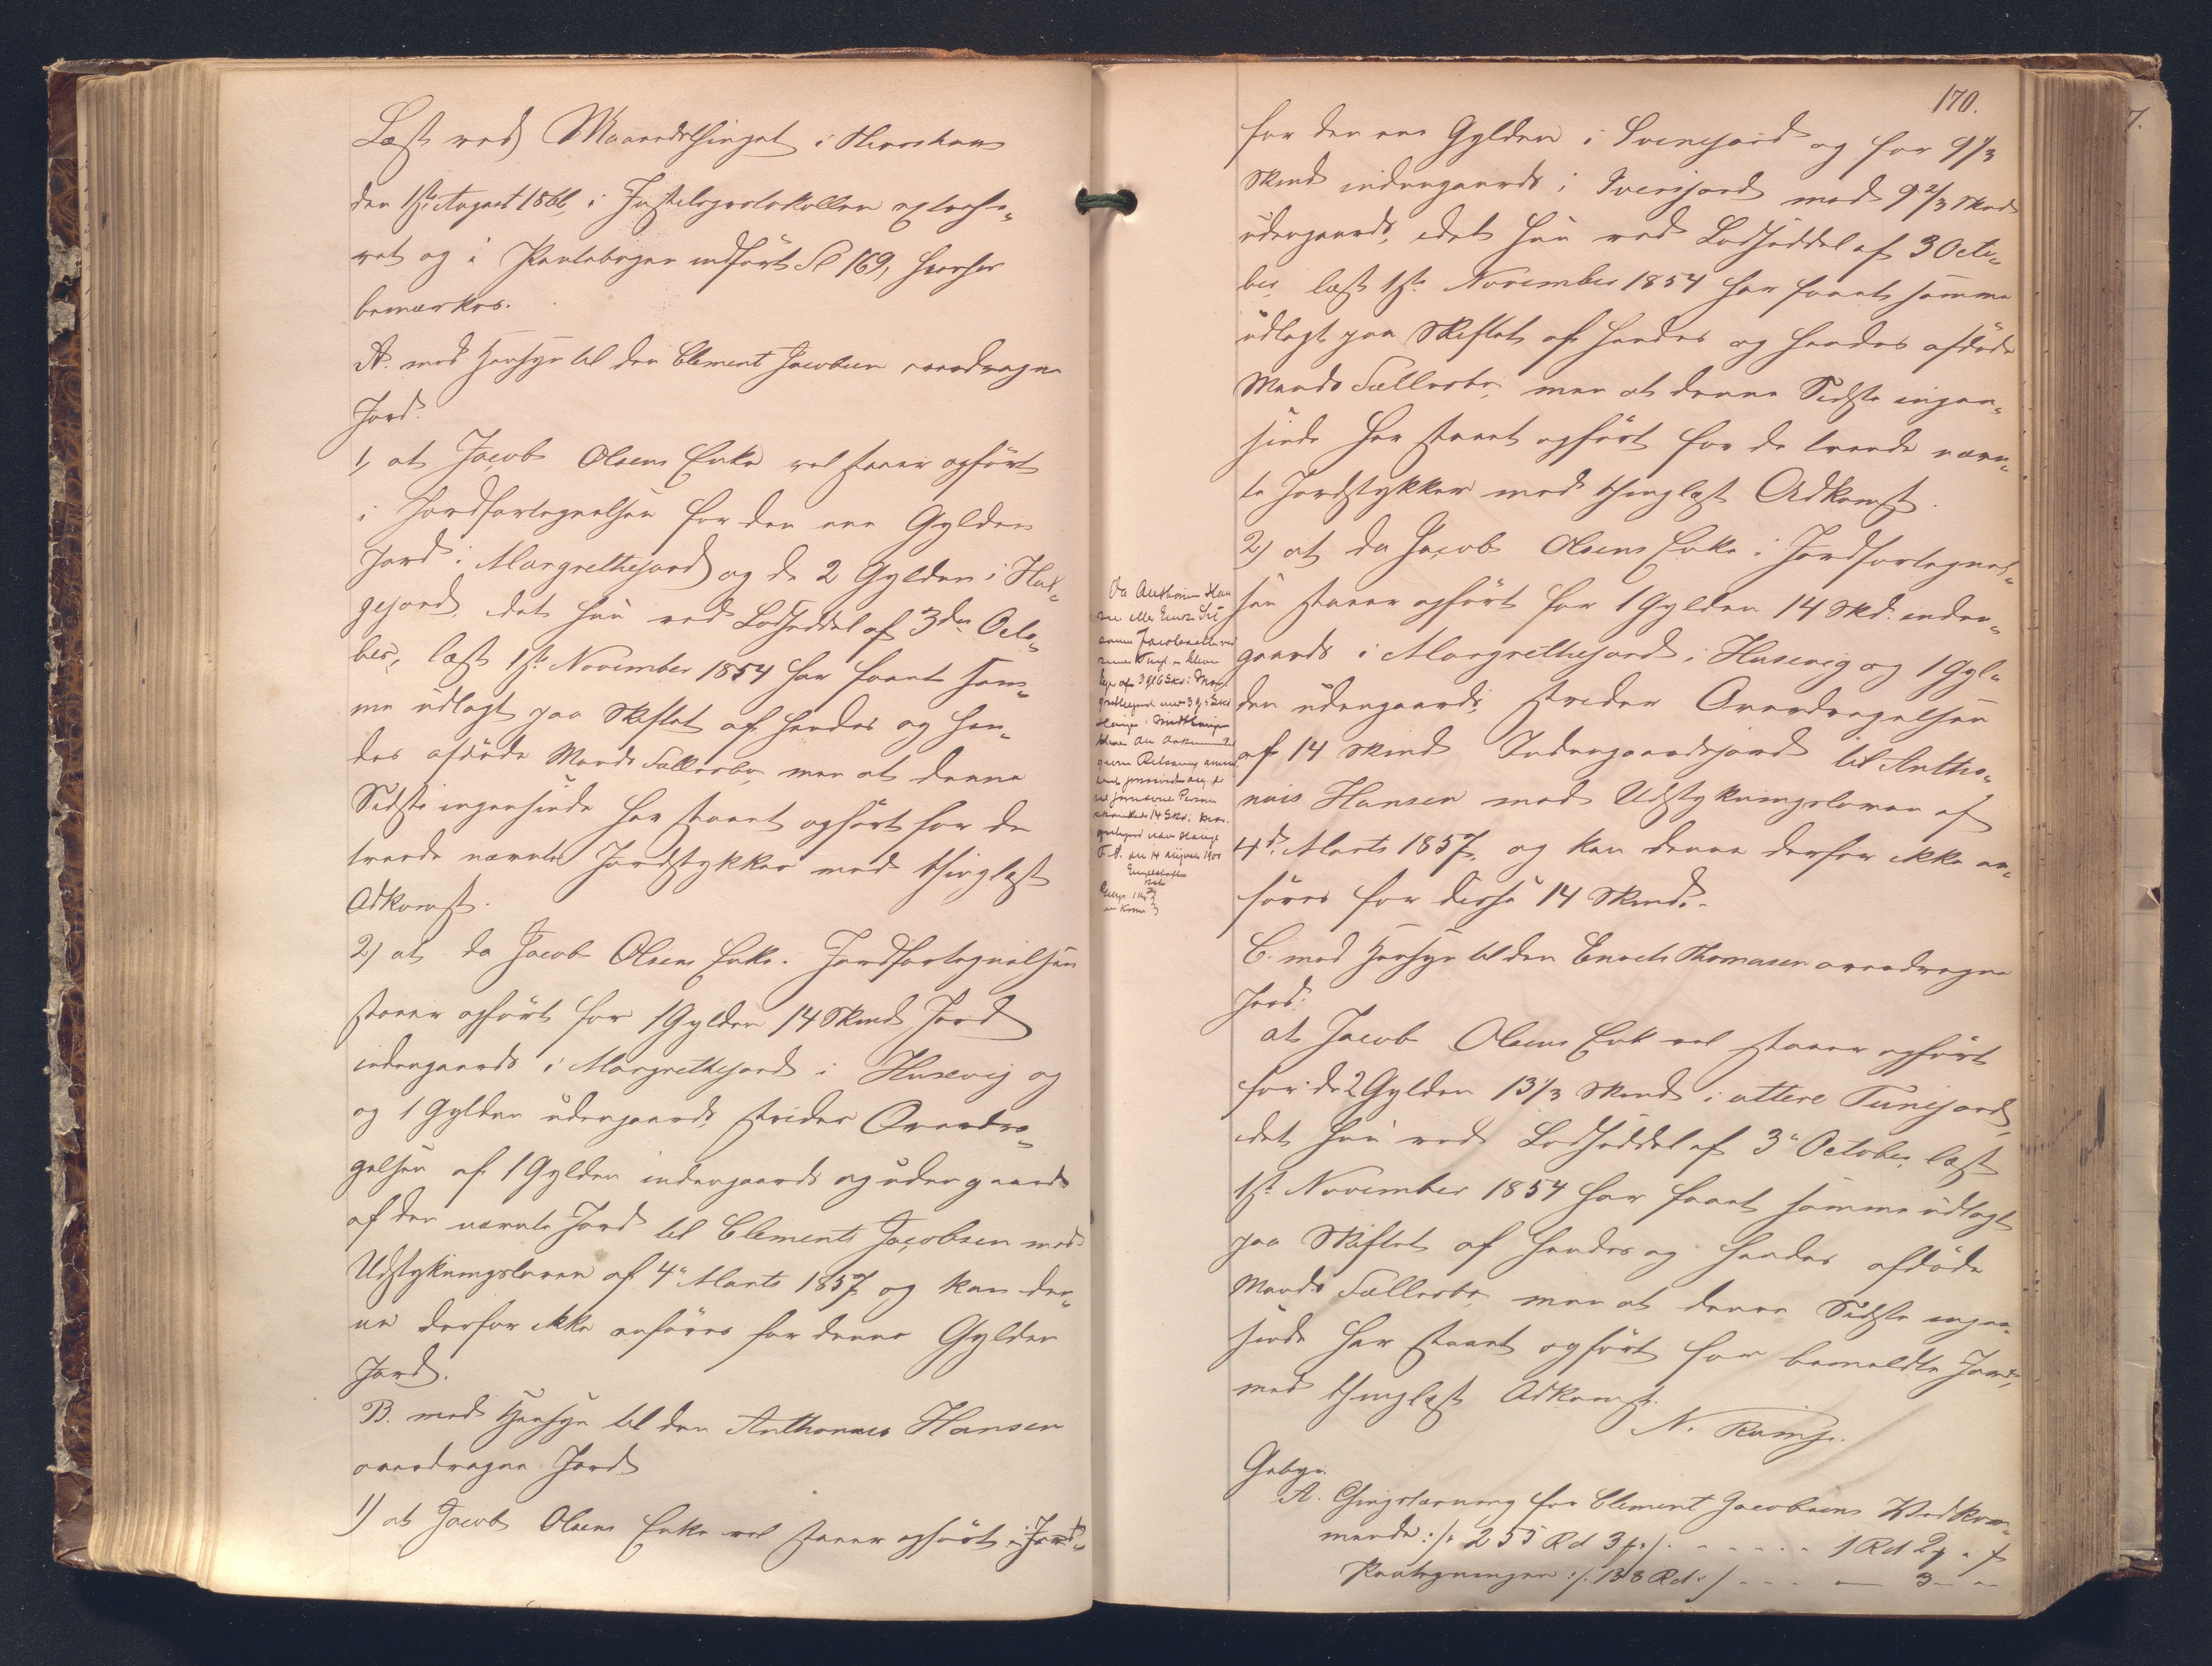 Læst ved Maanedsthinget i Thorshavn
den 1ste August 1866, i Justitsprotokollen extrahe-
ret og i Pantebogen indført Fol 169, hvorhos
bemærkes.
A. med Hensyn til den Clement Jacobsen overdragne
Jord:
1, at Jacob Olsens Enke vel staaer opført
i Jordfortegnelsen for den ene Gylden
Jord i Margrethejord og de 2 Gylden i Hul-
gejord, idet hun ved Lodseddel af 3die Octo-
ber, læst 1ste November 1854 har faaet sam-
me udlagt paa Skiftet af hendes og hen-
des afdøde Mands Fællesbo, men at denne
Sidste ingensinde har staaet opført for de
tvende nævnte Jordstykker med thinglæst
Adkomst.
2) at da Jacob Olsens Enke i Jordfortegnelsen
staaer opført for 1 Gylden 14 Skind Jord
indengaards i Margrethejord i Husevig og
og 1 Gylden udengaards strider Overdra-
gelsen af 1 Gylden indengaards og udengaards
af den nævnte Jord til Clement Jacobsen mod
Udstykningsloven af 4de Marts 1857 og kan den-
ne derfor ikke anføres for denne Gylden
Jord.
B. med Hensyn til den Anthonius Hansen
overdragne Jord
1) at Jacob Olsens Enke vel staaer opført i Jord-
170.
for den ene Gylden i Svenejord og for 9 1/3
Skind indengaards i Iversjord med 9 2/3 Skind
udengaards, idet hun ved Lodseddel af 3 Octo-
ber, læst 1ste November 1854 har faaet samme
udlagt paa Skiftet af hendes og hendes afdøde
Mands Fællesbo, men at denne Sidste ingen-
sinde har staaet opført for de tvende nævn-
te Jordstykker med thinglæst Adkomst.
2) at da Jacob Olsens Enke i Jordfortegnel-
sen staaer opført for 1 Gylden 14 Skd. inden-
gaards i Margrethejord i Husevig og 1 Gyl-
den udengaards, strider Overdragelsen
af 14 Skind Indengaardsjord til Antho-
nius Hansen mod Udstykningsloven af
4de Marts 1857, og kan denne derfor ikke an-
føres for disse 14 Skind.
C. med Hensyn til den Enoch Thomasen overdragne
Jord:
at Jacob Olsens Enk vel staaer opført
for de 2 Gylden 13 1/3 Skind i yttere Tunejord,
idet hun ved Lodseddel af 3de October, læst
1ste November 1854 har faaet samme udlagt
paa Skiftet af hendes og hendes afdøde
Mands Fællesbo, men at denne Sidste ingen-
sinde har staaet opført for bemeldte Jord,
med thinglæst Adkomst.
Gebyr.
A. Thinglæsning for Clement Jacobsens Vedkom-
mende :/: 255 Rd 3 /: - - - - - 1 Rd 2
Paategningen :/: 138 Rd :/ - - - — 3 -
Da Anthonius Han